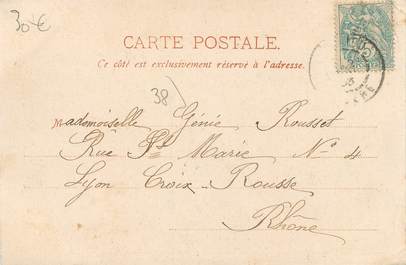 30€
CARTE POSTALE.
Ce côté est exclusivement réservé à l'adresse.
38
Mademoiselle Génie Rousset
Rue Ste Marie N° 4
Lyon Croix-Rousse
Rhône